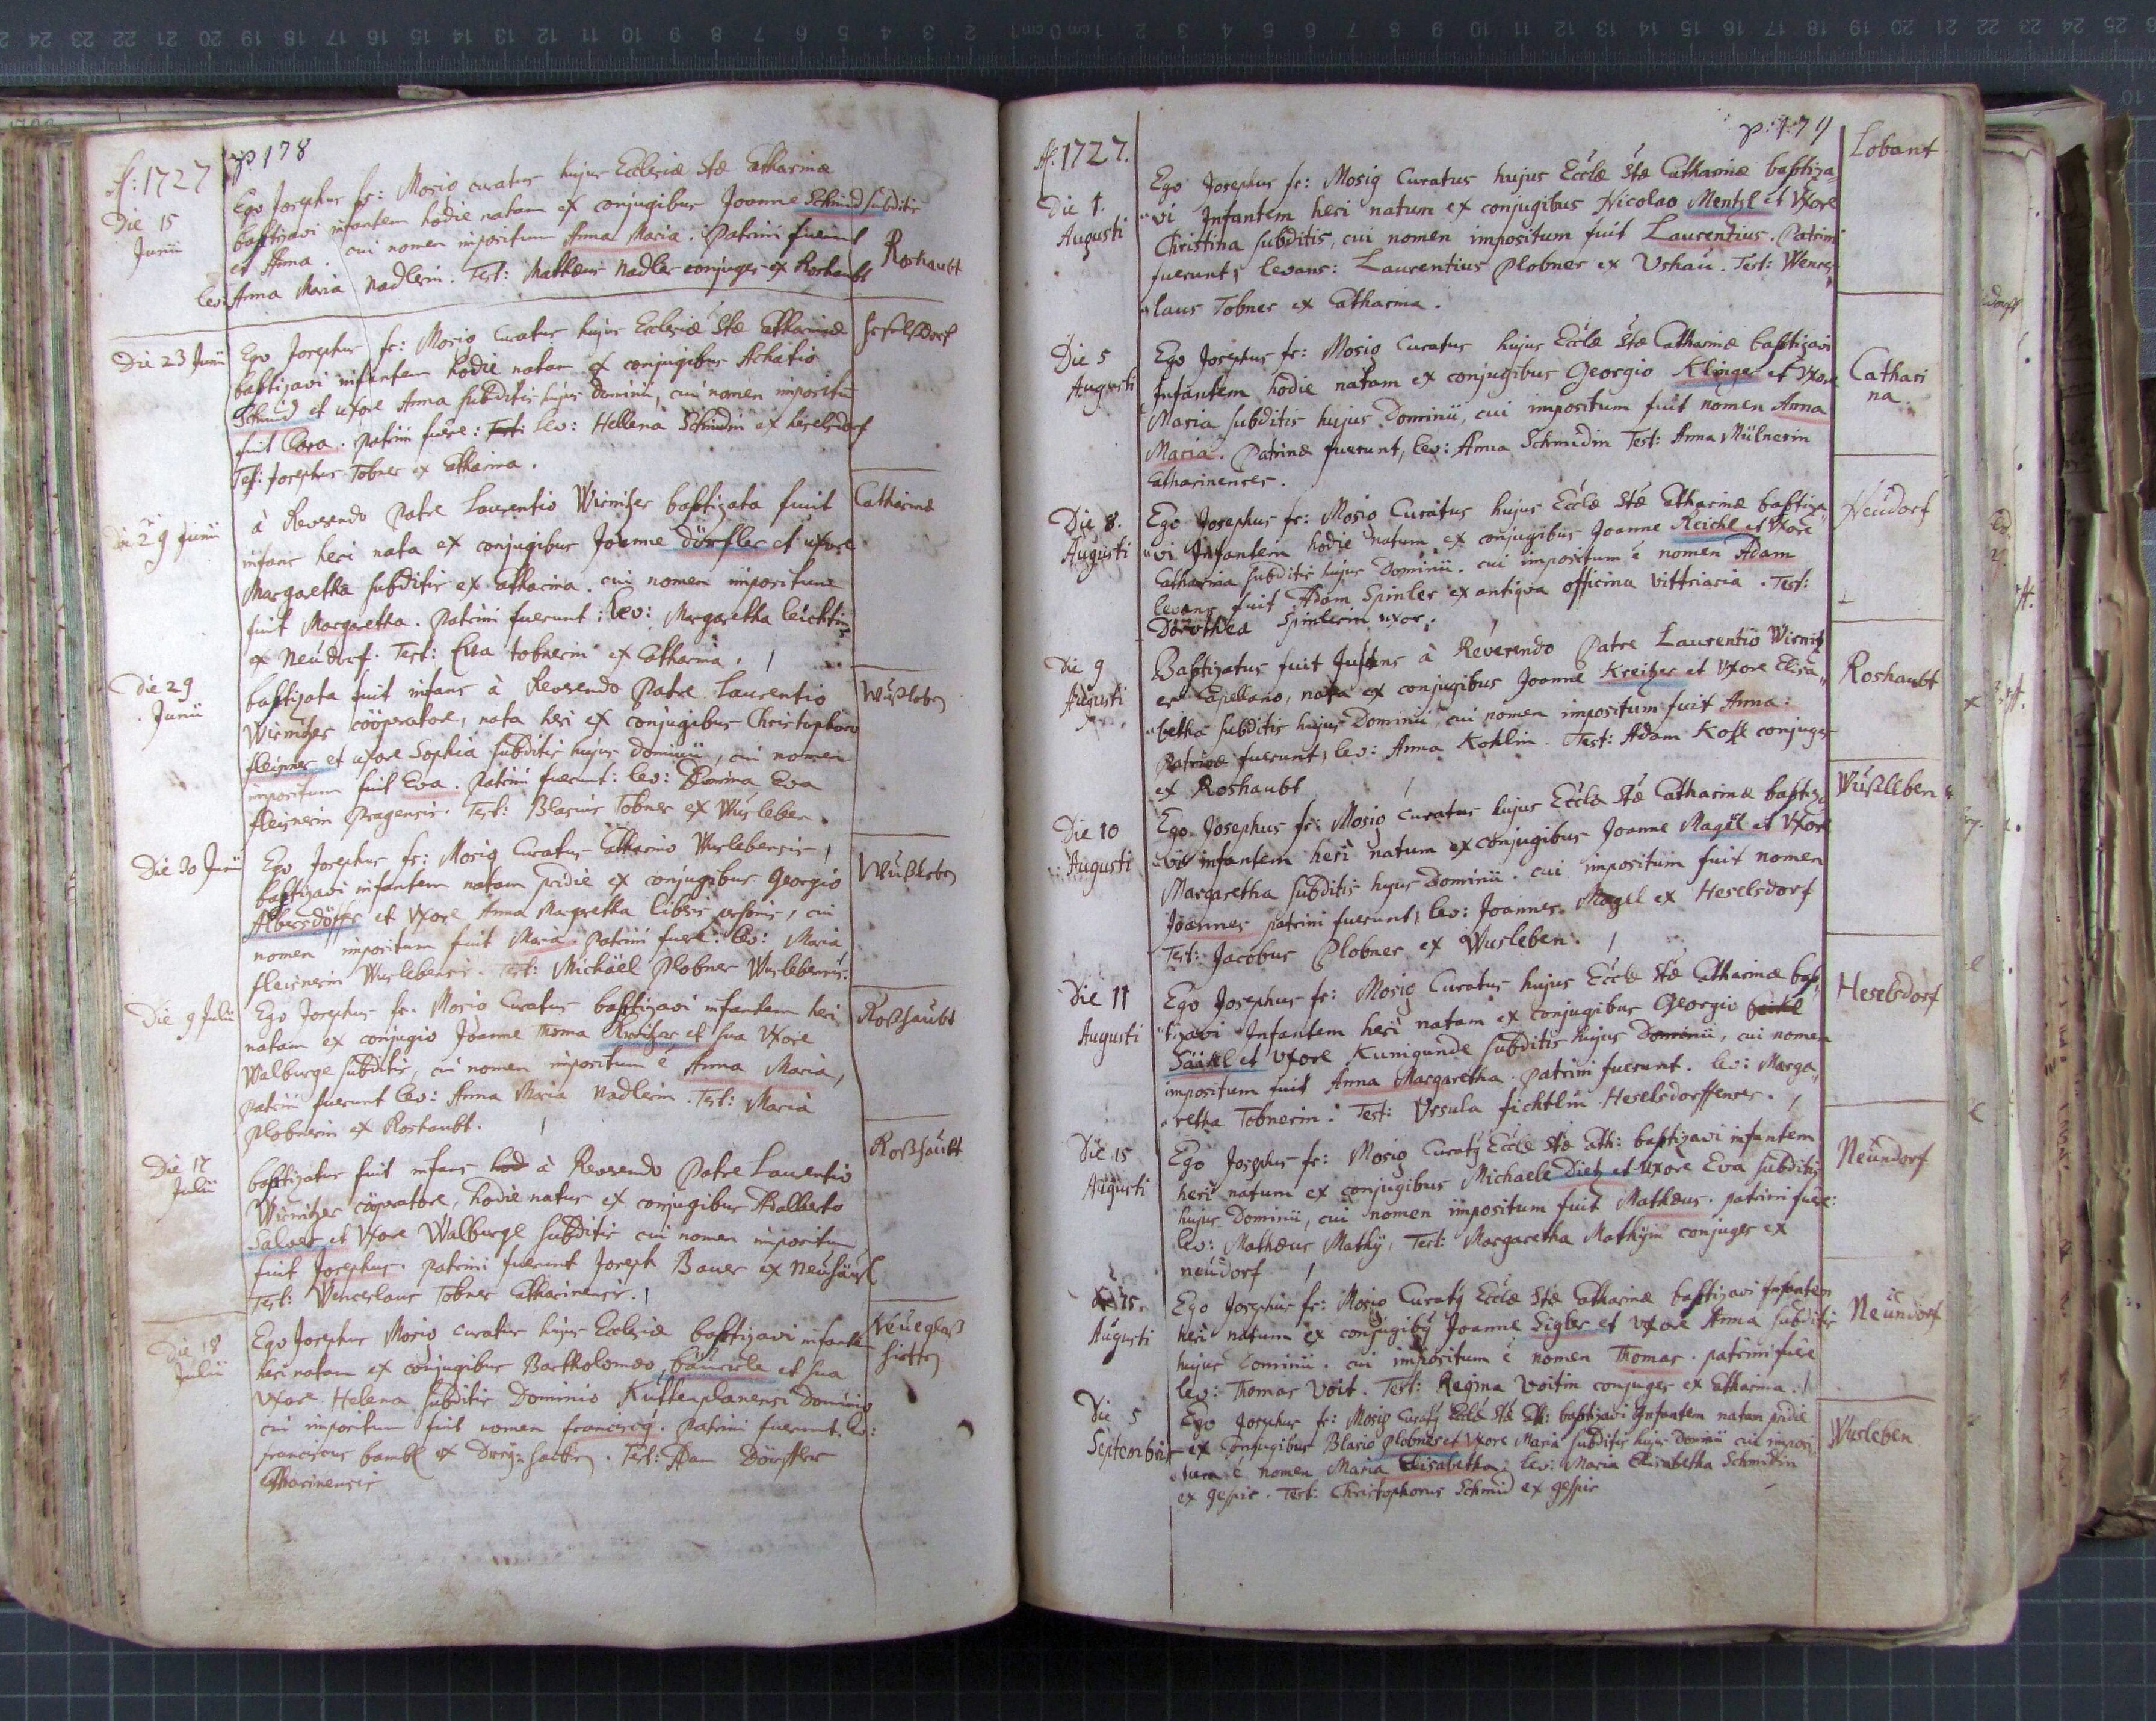 A: 1727 p 178
Die 15 Junii
Ego Josephus fr: Mosig curatus hujus Ecclesiæ Stæ Catharinæ
baptizavi infantem hodie natam ex conjugibus Joanne Schmid subditis
et Anna. cui nomen impositum Anna Maria. Patrini fuerunt
lev: Anna Maria Nadlerin. Test: Mathæus Nadler conjuges ex Roshaubt
Roshaubt
Die 23 Junii
Ego Josephus fr: Mosig Curatus hujus Ecclesiæ Stæ Catharinæ
baptizavi infantem hodie natam ex conjugibus Achatio
Schmid et uxore Anna subditis hujus Dominii, cui nomen impositū
fuit Clara. Patrini fuêre: Test: lev: Hellena Schmidin ex Heselsdorf
Test: Josephus Tobner ex Catharina.
Heselsdorf
Die 29 Junii
à Reverendo Patre Laurentio Wirnitzer baptizata fuit
infans heri nata ex conjugibus Joanne Dörfler et uxore
Margaretha subditis ex Catharina. cui nomen impositum
fuit Margaretha. Patrini fuerunt: lev: Margaretha
ex Neudorf. Test: Eva tobnerin ex Catharina.
Catharina
Die 29
Junii
baptizata fuit infans à Reverendo Patre Laurentio
Wirnitzer cöoperatore, nata heri ex conjugibus Christophoro
fleisner et uxore Sophia subditis hujus Dominii, cui nomen
impositum fuit Eva. Patrini fuerunt: lev: Eva
fleisnerin Pragensis. Test: Blasius Tobner ex Wusleben.
Wußleben
Die 30 Junii
Ego Josephus fr: Mosig Curatus Catharino Wuslebensis
baptizavi infantem natam pridie ex conjugibus Georgio
Albersdörffer et Uxore Anna Margaretha liberis personis, cui
nomen impositum fuit Maria. Patrini fuêre: lev: Maria
fleisnerin Wuslebensis. Test: Michäel Plobner Wuslebensis.
Wußleben
Die 9 Julii
Ego Josephus fr. Mosig Curatus baptizavi infantem heri
natam ex conjugio Joanne Thoma Kreitzer et sua Uxore
Walburge subditis, cui nomen impositum é Anna Maria,
Patrini fuerunt lev: Anna Maria Nadlerin. Test: Maria
Plobnerin ex Roshaubt.
Roßhaubt
Die 17
Julii
baptizatus fuit infans hod à Reverendo Patre Laurentio
Wirnitzer cöoperatore, hodie natus ex conjugibus Adalberto
Salver et Uxore Walburge subditis cui nomen impositum
fuit Josephus. patrini fuerunt Joseph Bauer ex Neuhäusl
Test: Venceslaus Tobner Catharinensis.
Roßhaubt
Die 18
Julii
Ego Josephus Mosig curatus hujus Ecclesiæ baptizavi infantē
heri natam ex conjugibus Bartholomæo et sua
Uxore Helena subditis Dominio Kuttenplanensi Dominio
cui impositum fuit nomen franciscy. Patrini fuerunt. lev:
franciscus ex Drey: hacken. Test: Adam Dörffler
Catharinensis
Neueglaß
hietten
A: 1727. p: 179
Die 1.
Augusti
Ego Josephus fr: Mosig Curatus hujus Eccl̄æ Stæ Catharinæ baptiza
vi Infantem heri natum ex conjugibus Nicolao Mentzl et Uxore
Christina subditis, cui nomen impositum fuit Laurentius. Patrini
fuerunt, levans: Laurentius Plobner ex Ushau. Test: Wences
laus Tobner ex Catharina.
Lobant
Die 5
Augusti
Ego Josephus fr: Mosig Curatus hujus Eccl̄æ Stæ Catharinæ baptizavi
Infantem hodie natam ex conjugibus Georgio Klinger et Uxore
Maria subditis hujus Dominii, cui impositum fuit nomen Anna
Maria. Patrinæ fuerunt, lev: Anna Schmidin Test: Anna Milnerin
Catharinenses.
Cathari
na.
Die 8.
Augusti
Ego Josephus fr: Mosig Curatus hujus Eccl̄æ Stæ Catharinæ baptiza
vi Infantem hodie natum ex conjugibus Joanne Reichl et Uxore
Catharina subditis hujus Dominii. cui impositum é nomen Adam
levans fuit Adam Spinler ex antiqua officina vittriaria. Test:
Dorothea Spinlerin uxor.
Neudorf
Die 9
Augusti
Baptizatus fuit Infans à Reverendo Patre Laurentio Wirnitz
er Capellano, nata ex conjugibus Joanne Kreitzer et Uxore Elisa
betha subditis hujus Dominii cui nomen impositum fuit Anna:
Patrinæ fuerunt, lev: Anna Kohlin. Test: Adam Kohl conjuges
ex Roshaubt
Roshaubt
Die 10
Augusti
Ego Josephus fr: Mosig Curatus hujus Eccl̄æ Stæ Catharinæ baptiza
vi infantem heri natum ex conjugibus Joanne Magël et Uxore
Margaretha subditis hujus Dominii. cui impositum fuit nomen
Joannes patrini fuerunt, lev: Joannes Magel ex Heselsdorf
Test: Jacobus Plobner ex Wusleben.
Wußlleben
Die 11
Augusti
Ego Josephus fr: Mosig Curatus hujus Eccl̄æ Stæ Catharinæ bap
tizavi Infantem heri natam ex conjugibus Georgio
Säükl et uxore Kunigunde subditis hujus Dominii, cui nomen
impositum fuit Anna Margaretha. patrini fuerunt. lev: Marga
retha Tobnerin. Test: Ursula fichtlin Heselsdorffenses.
Heselsdorf
Die 15
Augusti
Ego Josephus fr: Mosig Curaty Eccl̄æ Stæ Cath: baptizavi infantem
heri natum ex conjugibus Michaele Dietz et Uxore Eva subditis
hujus Dominii, cui nomen impositum fuit Mathæus. patrini fuêre:
lev: Mathæus Mathÿ, Test: Margaretha Mathÿin conjuges ex
neudorf
Neündorf
15.
Augusti
Ego Josephus fr: Mosig Curaty Eccl̄æ Stæ Catharinæ baptizavi Infantem
heri natum ex conjugiby Joanne Sigler et uxore Anna subditis
hujus Dominii. cui impositum é nomen Thomas. patrini fuêre
lev: Thomas Voit. Test: Regina Voitin conjuges ex Catharina.
Neündorf
Die 5
Septembris
Ego Josephus fr: Mosig Curaty Eccl̄æ Stæ Cath: baptizavi Infantem natam pridie
ex Conjugibus Blasio Plobner et Uxore Maria subditis hujus Dominii cui imposi
tum é nomen Maria Elisabetha. lev: Maria Elisabetha Schmidin
ex gespir. Test: Christophorus Schmid ex gespir
Wusleben